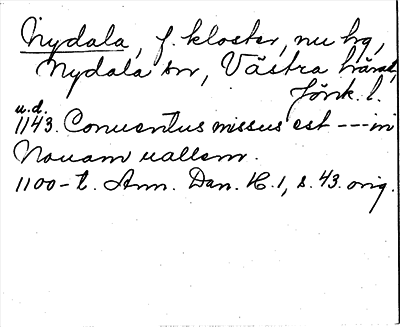 Nydala, f. kloster, nu hg,
Nydala sn, Västra härad,
Jönk. l.
u.d.
1143. Conuentus missus est --- in
Nouam uallem.
1100-t. Ann. Dan. H. 1, s. 43. orig.